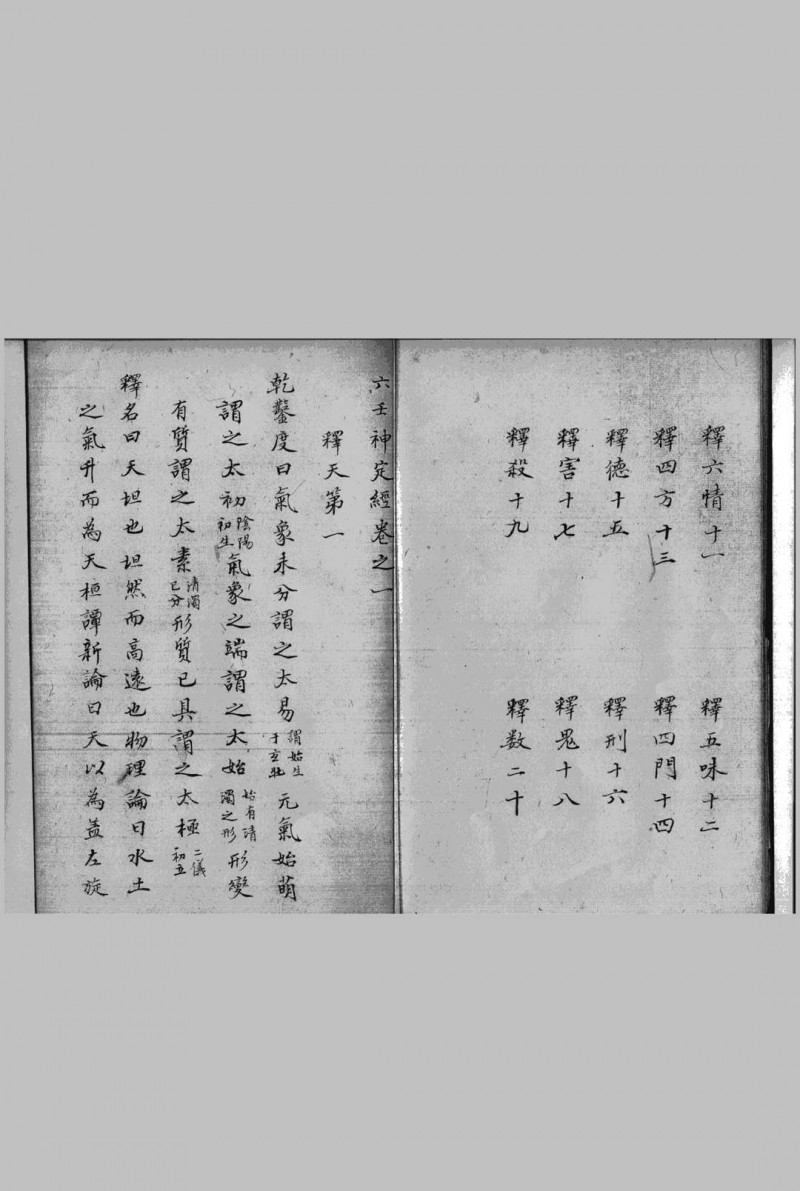 釋六情十一 釋五味十二
釋四方十三 釋四門十四
釋德十五 釋刑十六
釋害十七 釋鬼十八
釋殺十九 釋数二十
六壬神定經卷之一
釋天第一
乾鑿度曰氣象未分謂之太易謂始生于玄牝元氣始萌
謂之太初陰陽初生氣象之端謂之太始始有清濁之形形變
有質謂之太素清濁已分形質已具謂之太極二儀初立
釋名曰天坦也坦然而高遠也物理論曰水土
之氣升而為天桓譚新論曰天以為蓋左旋